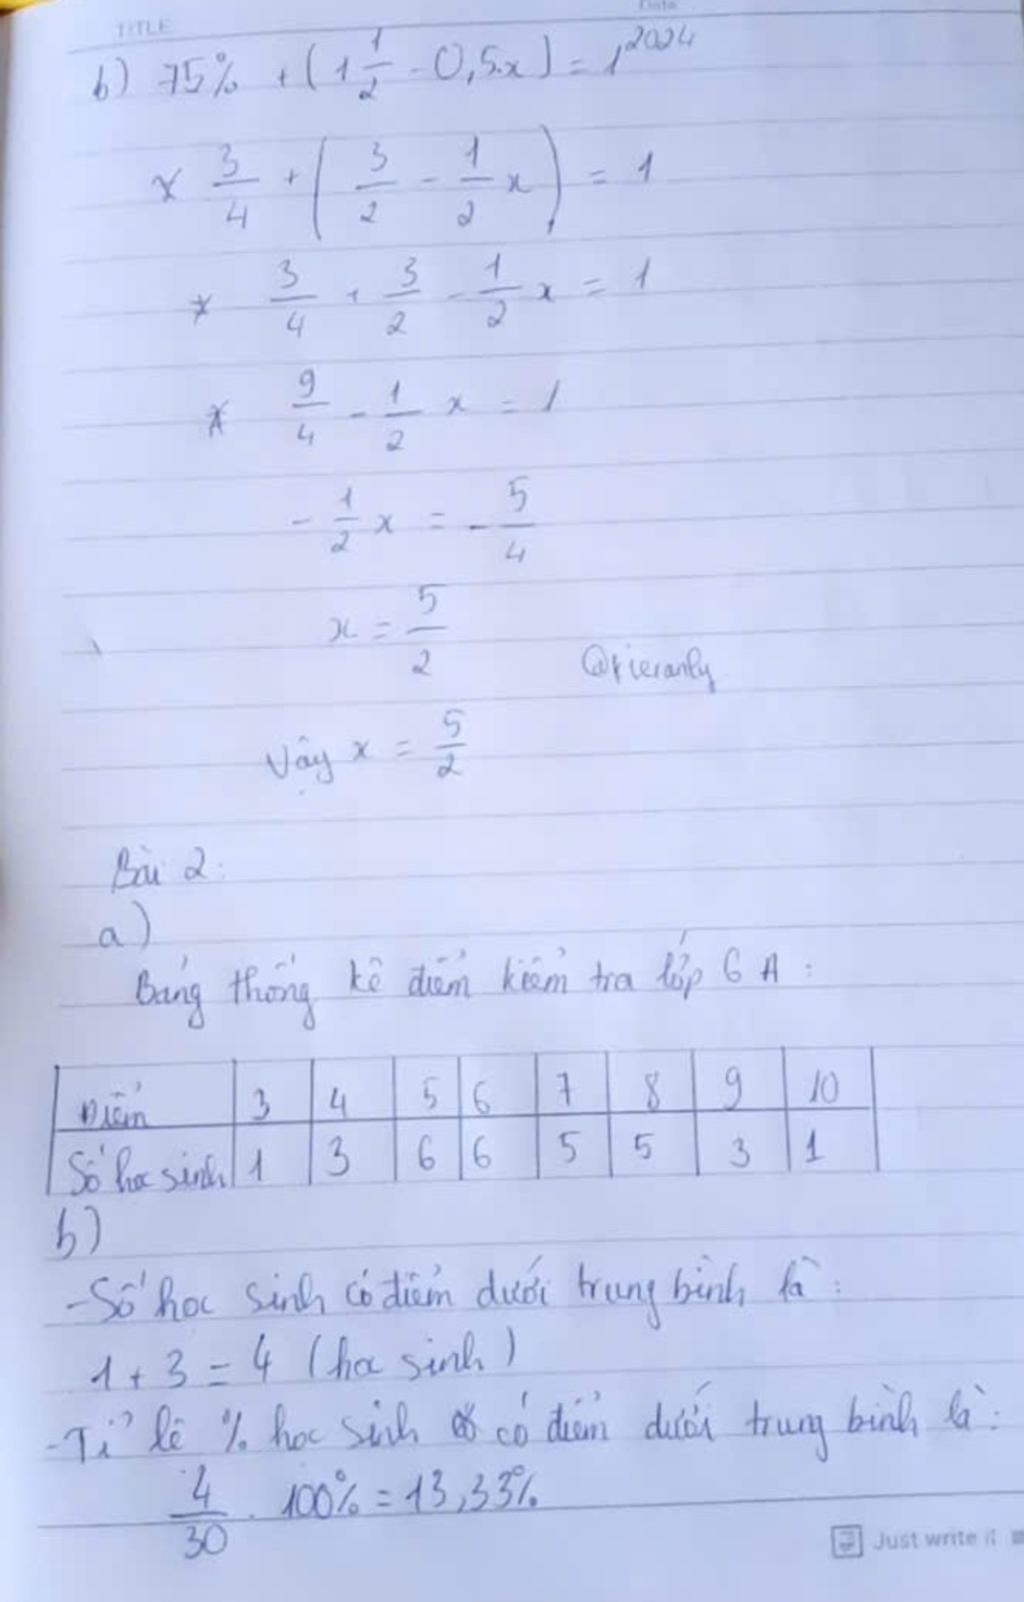 TITLE
Date
b) 75% + (1 1/2 - 0,5.x) = 1^2024
* 3/4 + (3/2 - 1/2 x) = 1
* 3/4 + 3/2 - 1/2 x = 1
* 9/4 - 1/2 x = 1
- 1/2 x = - 5/4
x = 5/2
@kieranly
Vậy x = 5/2
Bài 2:
a)
Bảng thống kê điểm kiểm tra lớp 6A:
Điểm 3 4 5 6 7 8 9 10
Số học sinh 1 3 6 6 5 5 3 1
b)
-Số học sinh có điểm dưới trung bình là:
1 + 3 = 4 (học sinh)
-Tỉ lệ % học sinh có điểm dưới trung bình là:
4/30 . 100% = 13,33%
Just write it